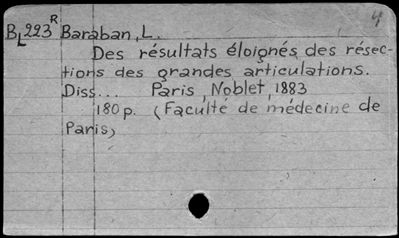 4
BL223R Baraban, L.
Des résultats éloignés des résec-
tions des grandes articulations.
Diss... Paris, Noblet, 1883
180 p. (Faculté de médecine de
Paris)